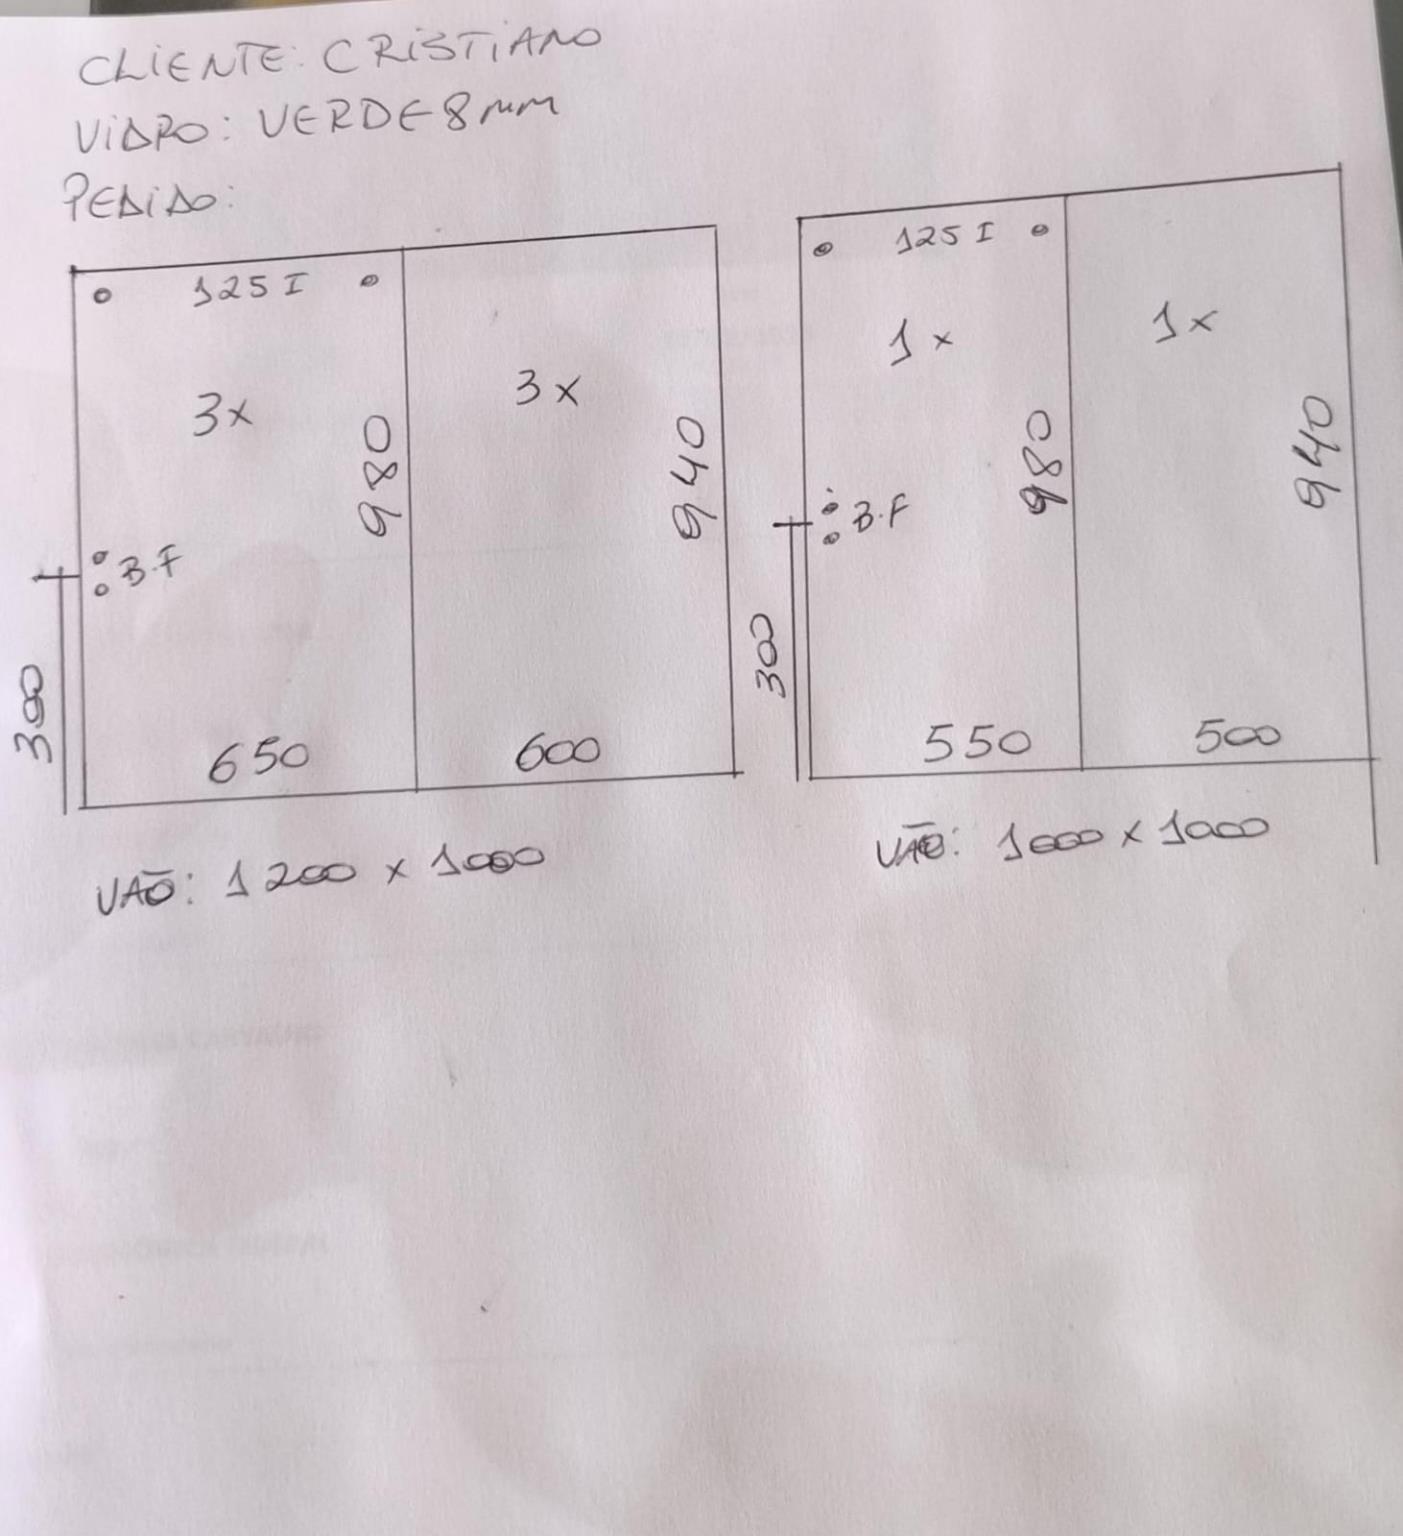 CLIENTE: CRISTIANO
VIDRO: VERDE 8mm
PEDIDO:
125 I
3x
3x
980
940
B.F
300
650
600
VÃO: 1200 x 1000
125 I
1x
1x
980
940
B.F
300
550
500
VÃO: 1000 x 1000